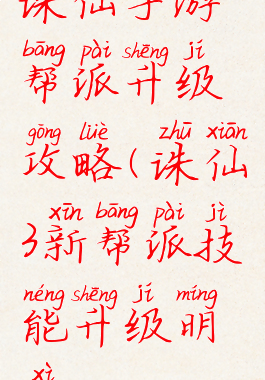 诛仙手游
bāng pài shēng jí
帮派升级
gōng lüè zhū xiān
攻略(诛仙
xīn bāng pài jì
3新帮派技
néng shēng jí míng
能升级明
xì